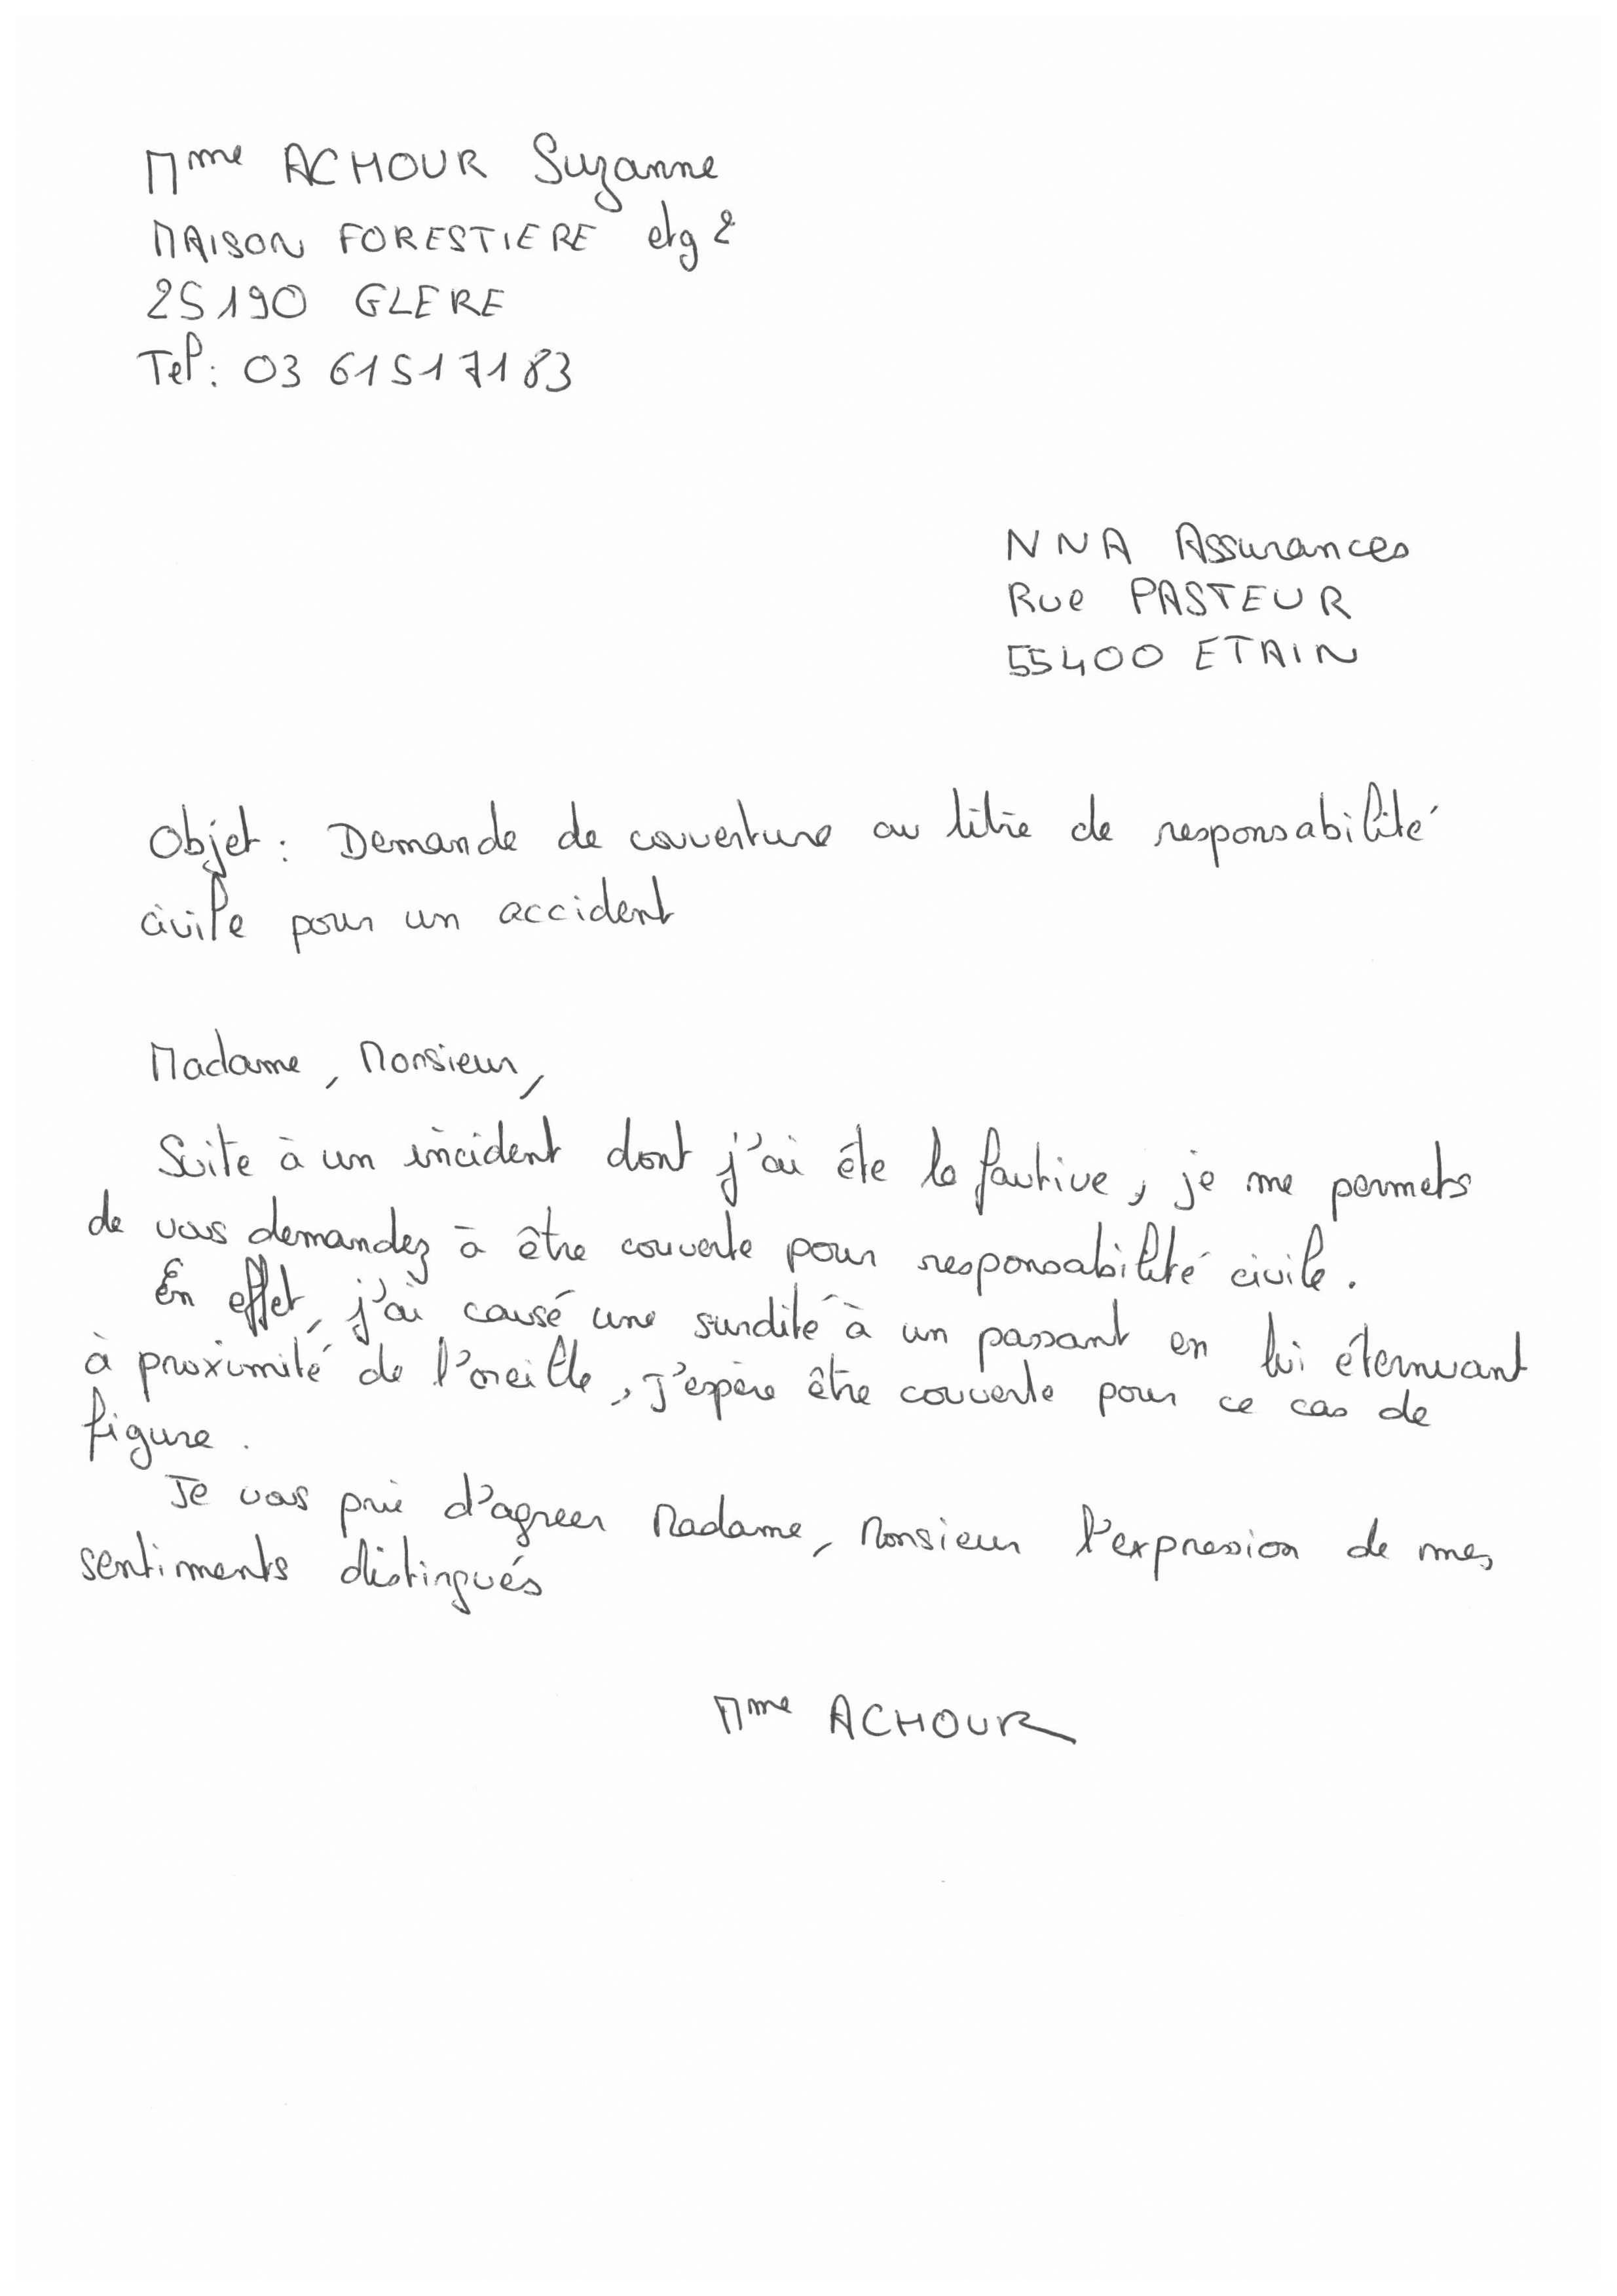 Mme ACHOUR Suzanne
MAISON FORESTIERE etg 2
25190 GLERE
Tel: 03 61517183
NNA Assurances
Rue PASTEUR
55400 ETAIN
Objet : Demande de couverture au titre de responsabilité
civile pour un accident
Madame, Monsieur,
Suite à un incident dont j'ai éte la fautive, je me permets
de vous demandez à être couverte pour responsabilité civile.
En effet, j'ai causé une surdité à un passant en lui éternuant
à proximité de l'oreille, j'espère être couverte pour ce cas de
figure.
Je vous prie d'agreer Madame, Monsieur l'expression de mes
sentiments distingués
Mme ACHOUR